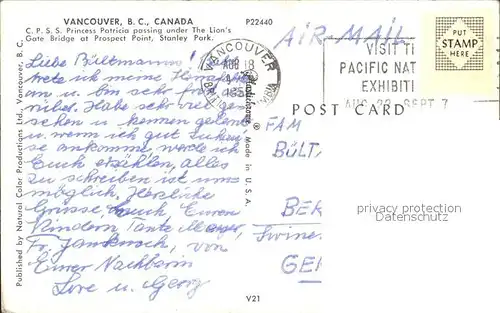 VANCOUVER, B. C., CANADA P22440
C. P. S. S. Princess Patricia passing under The Lion's
Gate Bridge at Prospect Point, Stanley Park.
Published by Natural Color Productions Ltd., Vancouver, B. C.
Liebe Bültmanns! Nun
trete ich meine Heimfahrt
an u. bin sehr froh
rüber. Habe sehr viel ge-
sehen u. kennen gelernt
u. wenn ich gut zuhau-
se ankomme werde ich
Euch erzählen, alles
zu schreiben ist unm
möglich. Herzliche
Grüsse Euch Euren
Kindern Tante
Fr. von
Eurer Nachbarin
Lore u. Georg
V21
Made in U. S. A.
VANCOUVER
AUG 18
AIR-MAIL
VISIT TI
PACIFIC NAT
EXHIBITI
AUG 22 SEPT 7
PUT
STAMP
HERE
POST CARD
FAM
BÜLT
BER
GE
privacy protection
Datenschutz